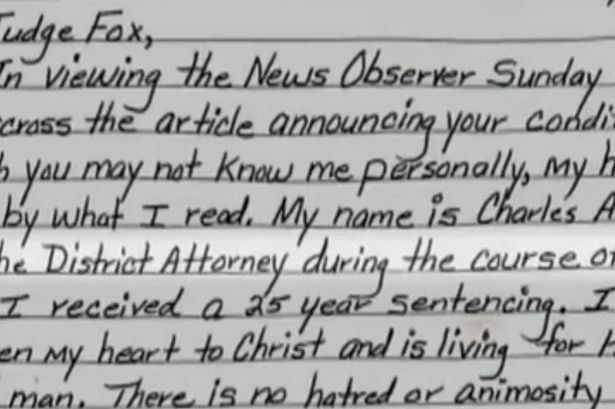 Judge Fox,
In viewing the News Observer Sunday
cross the article announcing your condi
h you may not know me personally, my h
by what I read. My name is Charles A
he District Attorney during the course o
I received a 25 year sentencing. I
en my heart to Christ and is living for H
man. There is no hatred or animosity